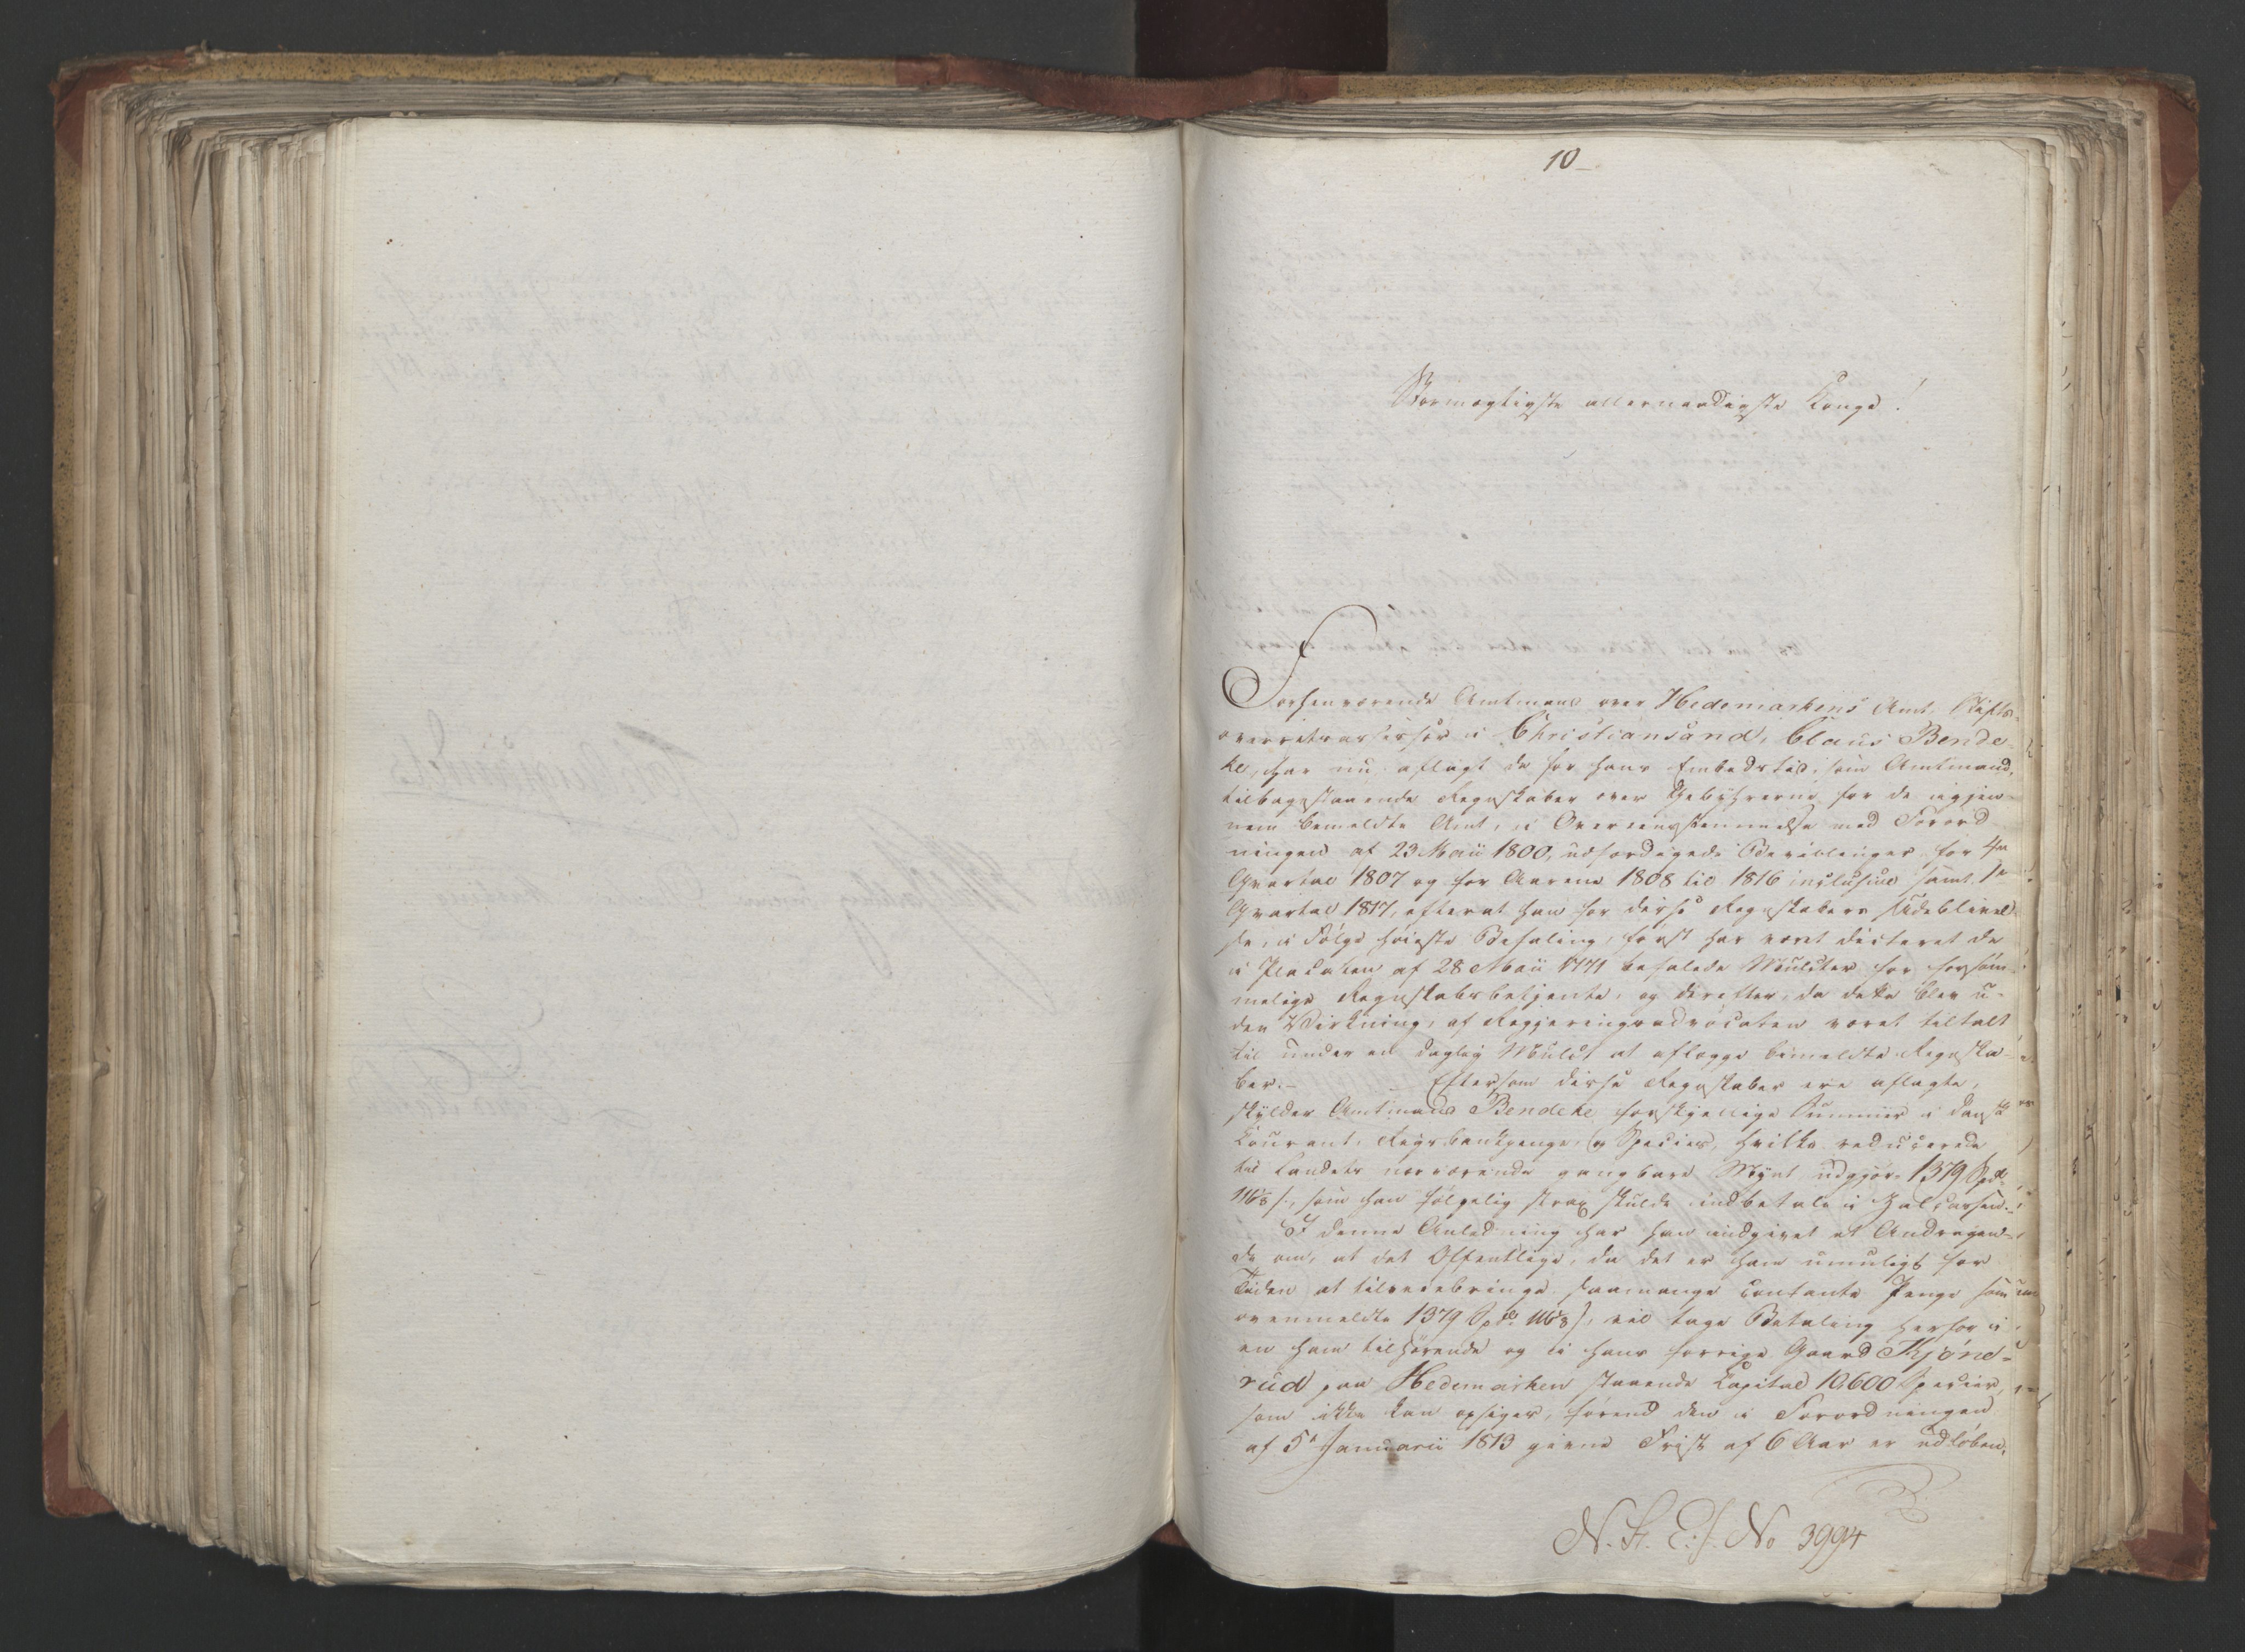 10
Stormægtigste allernaadigste Konge!
Forhenværende Amtmand over Hedemarkens Amt, Stifts-
overretsassessor i Christiansand, Claus Bende-
ke, har nu aflagt de for hans Embedstid, som Amtmand,
tilbagestaaende Regnskaber over Gebyhrerne for de igjen-
nem bemeldte Amt, i Overeensstemmelse med Forord
ningen af 23 Maii 1800, udfærdigede Bevillinger for 4de
Qvartal 1807 og for Aarene 1808 til 1816 inclusive samt 1ste
Qvartal 1817, efterat han for disse Regnskabers Udeblivel
se, i Følge høieste Befaling, først har været dicteret de
i Placaten af 28 Maii 1771 befalede Mulcter for forsøm-
melige Regnskabsbetjente, og derefter, da dette blev u-
den Virkning, af Regjeringsadvocaten været tiltalt
til under en daglig Mulct at aflægge bemeldte Regnska-
ber. – Eftersom disse Regnskaber ere aflagte,
skylder Amtmand Bendeke forskjellige Summer i dansk
Courant, Rigsbankpenge og Species, hvilke reducerede
til Landets nærværende gangbare Mynt udgjør 1379 Spd.
116⅓ s., som han følgelig strax skulde indbetale i Zalcassen.
I denne Anledning har han indgivet et Andragen-
de om, at det Offentlige, da det er ham umuligt for
Tiden at tilveiebringe saamange contante Penge som
ovenmeldte 1379 Spd. 116⅓ s, vil tage Betaling herfor i
en ham tilhørende og i hans forrige Gaard Kjöne-
rud paa Hedemarken staaende Capital 10,600 Species,
som ikke kan opsiges, førend den i Forordningen
af 5te Januarii 1813 givne Frist af 6 Aar er udløben.
N. St. E. s. No 3994